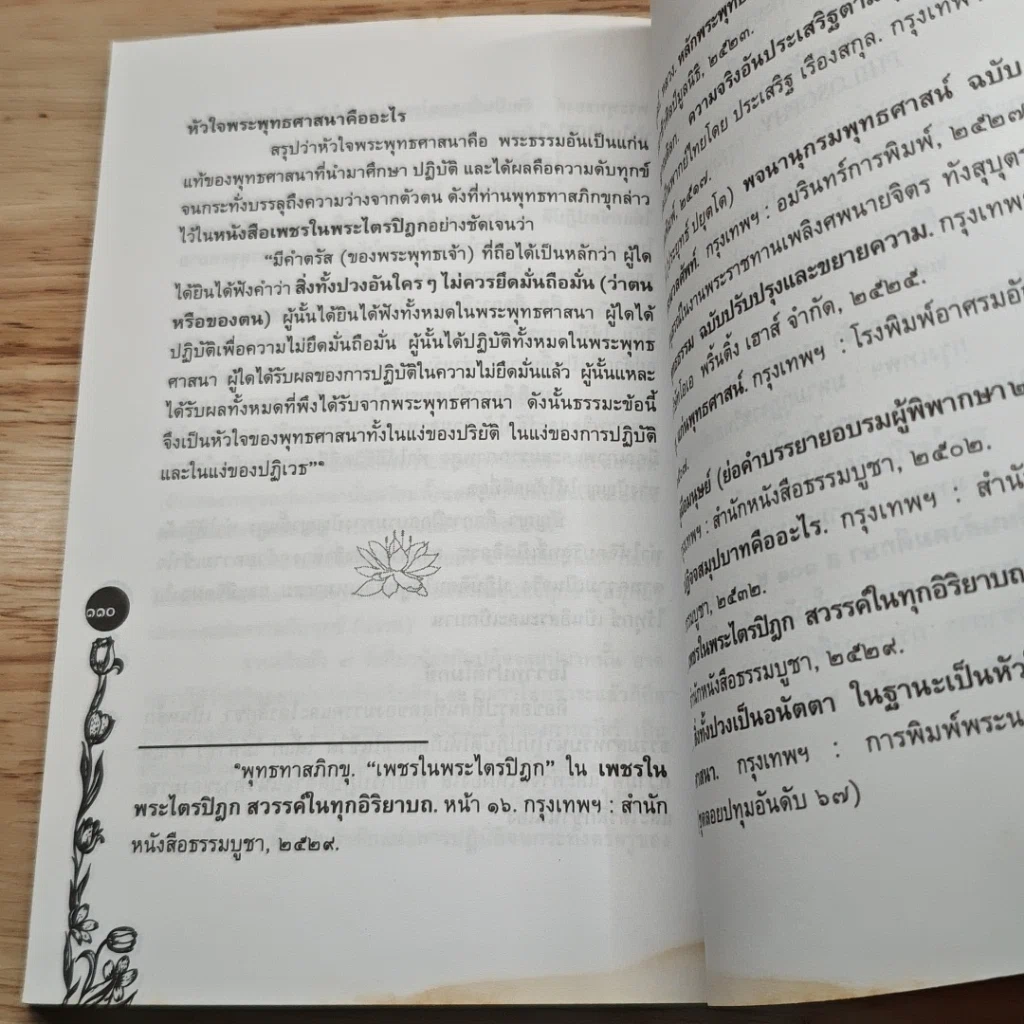 หัวใจพระพุทธศาสนาคืออะไร
สรุปว่าหัวใจพระพุทธศาสนาคือ พระธรรมอันเป็นแก่น
แท้ของพุทธศาสนาที่นำมาศึกษา ปฏิบัติ และได้ผลคือความดับทุกข์
จนกระทั่งบรรลุถึงความว่างจากตัวตน ดังที่ท่านพุทธทาสภิกขุกล่าว
ไว้ในหนังสือเพชรในพระไตรปิฎกอย่างชัดเจนว่า
“มีคำตรัส (ของพระพุทธเจ้า) ที่ถือได้เป็นหลักว่า ผู้ใด
ได้ยินได้ฟังคำว่า สิ่งทั้งปวงอันใคร ๆ ไม่ควรยึดมั่นถือมั่น (ว่าตน
หรือของตน) ผู้นั้นได้ยินได้ฟังทั้งหมดในพระพุทธศาสนา ผู้ใดได้
ปฏิบัติเพื่อความไม่ยึดมั่นถือมั่น ผู้นั้นได้ปฏิบัติทั้งหมดในพระพุทธ
ศาสนา ผู้ใดได้รับผลของการปฏิบัติในความไม่ยึดมั่นแล้ว ผู้นั้นแหละ
ได้รับผลทั้งหมดที่พึงได้รับจากพระพุทธศาสนา ดังนั้นธรรมะข้อนี้
จึงเป็นหัวใจของพุทธศาสนาทั้งในแง่ของปริยัติ ในแง่ของการปฏิบัติ
และในแง่ของปฏิเวธ”
๑๑๐
พุทธทาสภิกขุ. “เพชรในพระไตรปิฎก” ใน เพชรใน
พระไตรปิฎก สวรรค์ในทุกอิริยาบถ. หน้า ๑๖. กรุงเทพฯ : สำนัก
หนังสือธรรมบูชา, ๒๕๒๙.
หลักพระพุทธ
๒๕๒๓.
ความจริงอันประเสริฐ
ไทยโดย ประเสริฐ เรืองสกุล. กรุงเทพ
๒๕๑๗.
ปยุตฺโต) พจนานุกรมพุทธศาสน์ ฉบับ
กรุงเทพฯ : อมรินทร์การพิมพ์, ๒๕๒๗
ในงานพระราชทานเพลิงศพนายจิตร ทังสุบุตร
ฉบับปรับปรุงและขยายความ. กรุงเทพ
พริ้นติ้ง เฮาส์ จำกัด, ๒๕๒๕.
พุทธศาสน์. กรุงเทพฯ : โรงพิมพ์อาศรม
มนุษย์ (ย่อคำบรรยายอบรมผู้พิพากษา
: สำนักหนังสือธรรมบูชา, ๒๕๐๒.
คืออะไร. กรุงเทพฯ : สำนั
๒๕๓๒.
ในพระไตรปิฎก สวรรค์ในทุกอิริยาบถ
หนังสือธรรมบูชา, ๒๕๒๙.
ทั้งปวงเป็นอนัตตา ในฐานะเป็นหัว
กรุงเทพฯ : การพิมพ์พระน
ลอยปทุมอันดับ ๖๗)